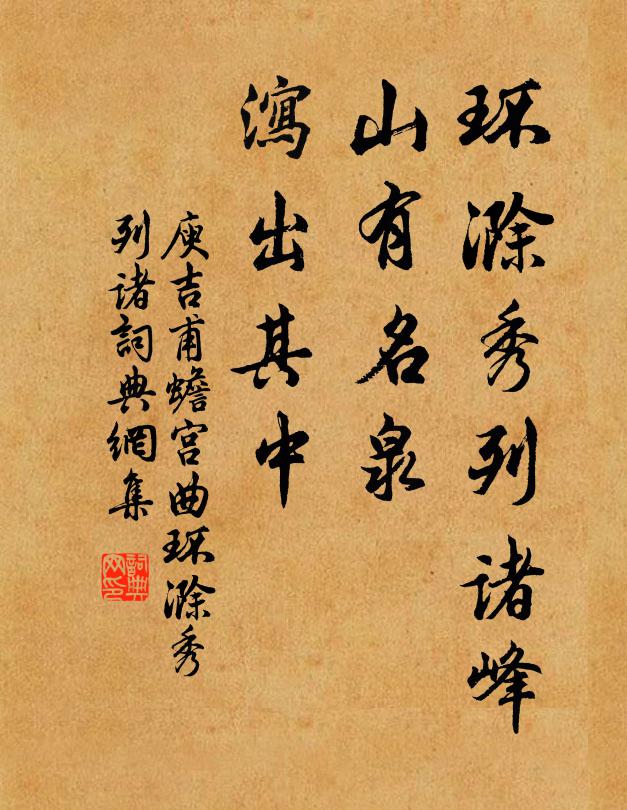 环滁秀列诸峰
山有名泉
瀉出其中
庾吉甫蟾宫曲环滁秀
列诸詞典網集
詞典网印